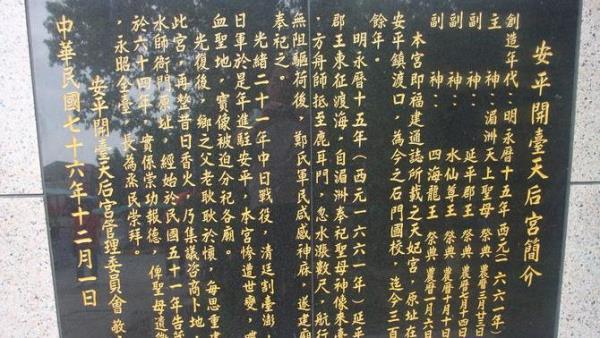 安平開臺天后宮簡介
創造年代 明永曆十五年西元(一六六一年)
主神:湄洲天上聖母 祭典 農曆三月廿三日
副神:延平郡王 祭典 農曆七月十四日
副神:水仙尊王 祭典 農曆十月十日
副神:四海龍王 祭典 農曆一月六日
本宮即福建通誌所載之天妃宮,原址在
安平鎮渡口,為今之石門國校,迄今三百
餘年。
明永曆十五年(西元一六六一年)延平
郡王東征渡海,自湄洲奉祀聖母神像來臺
,方舟師抵至鹿耳門,忽水漲數尺,航行
無阻驅荷後,鄭氏軍民咸感神庥,遂建廟
奉祀之。
光緒二十一年中日戰役,清廷割臺澎,
日軍於是年進駐安平,本宮慘遭世變,
血聖地,寶像被迫分祀各廟。
光復後,鄉之父老耿耿於懷,每思重建
此宮,再整昔日香火,乃集議咨商卜地,
水師衙門原址,經始於民國五十一年告
於六十四年,實係崇功報德,俾聖母遺
,永昭全臺,長為黨民崇拜。
安平開臺天后宮管理委員會 敬
中華民國七十六年十二月一日